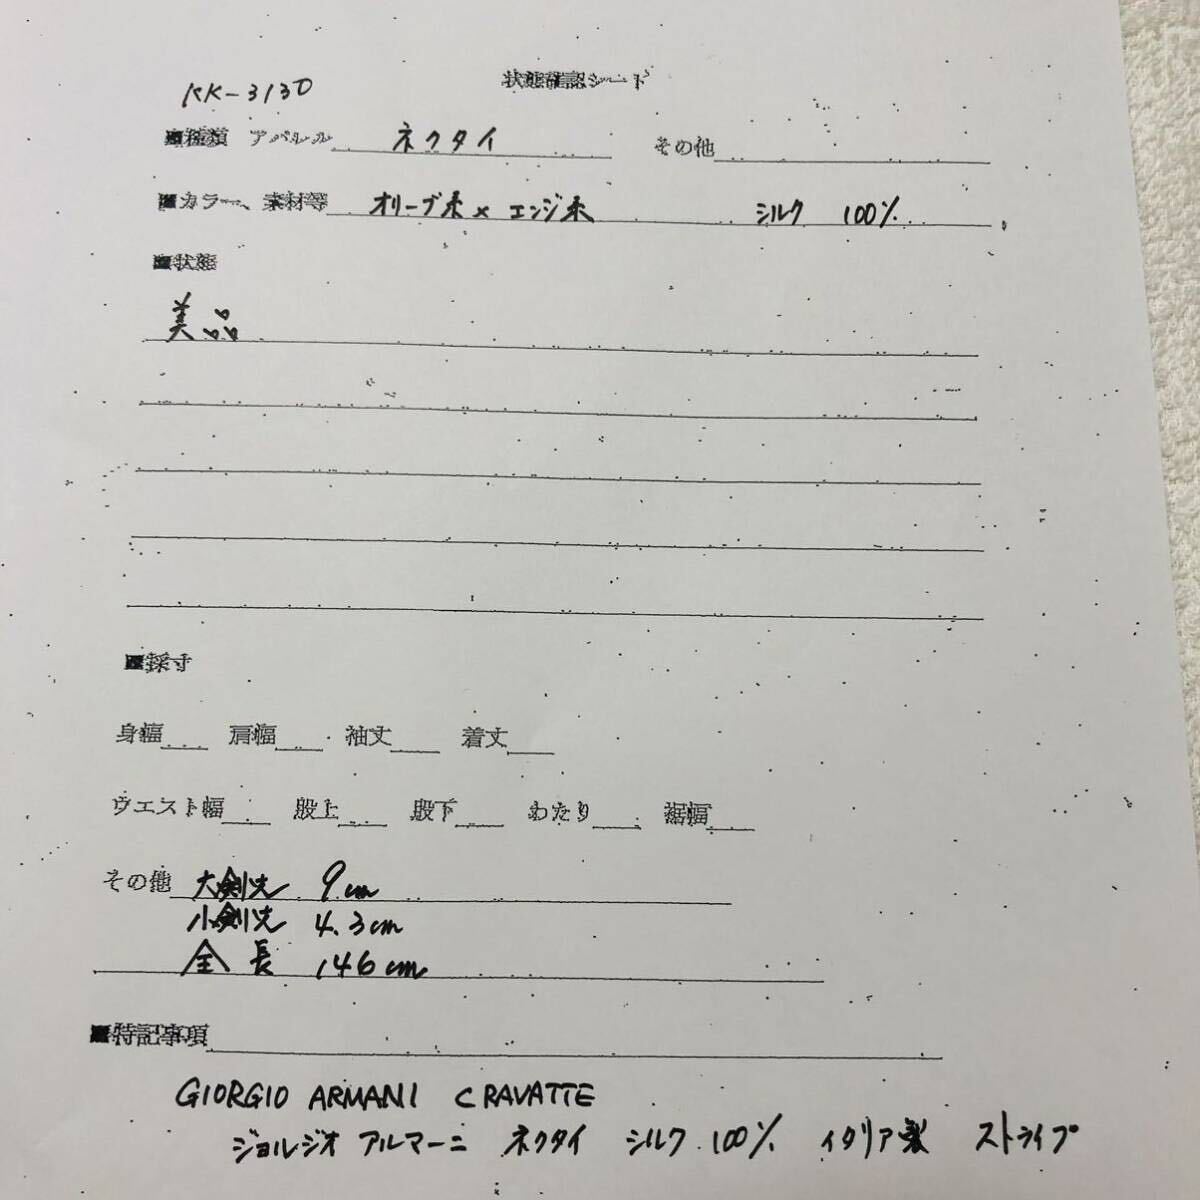 状態確認シート
KK-3130
■種類 アパレル ネクタイ その他
■カラー、素材等 オリーブ系×エンジ系 シルク 100%
■状態
美品
■採寸
身幅 肩幅 袖丈 着丈
ウエスト幅 股上 股下 わたり 裾幅
その他 大剣先 9cm
小剣先 4.3cm
全長 146cm
■特記事項
GIORGIO ARMANI CRAVATTE
ジョルジオ アルマーニ ネクタイ シルク 100% イタリア製 ストライプ